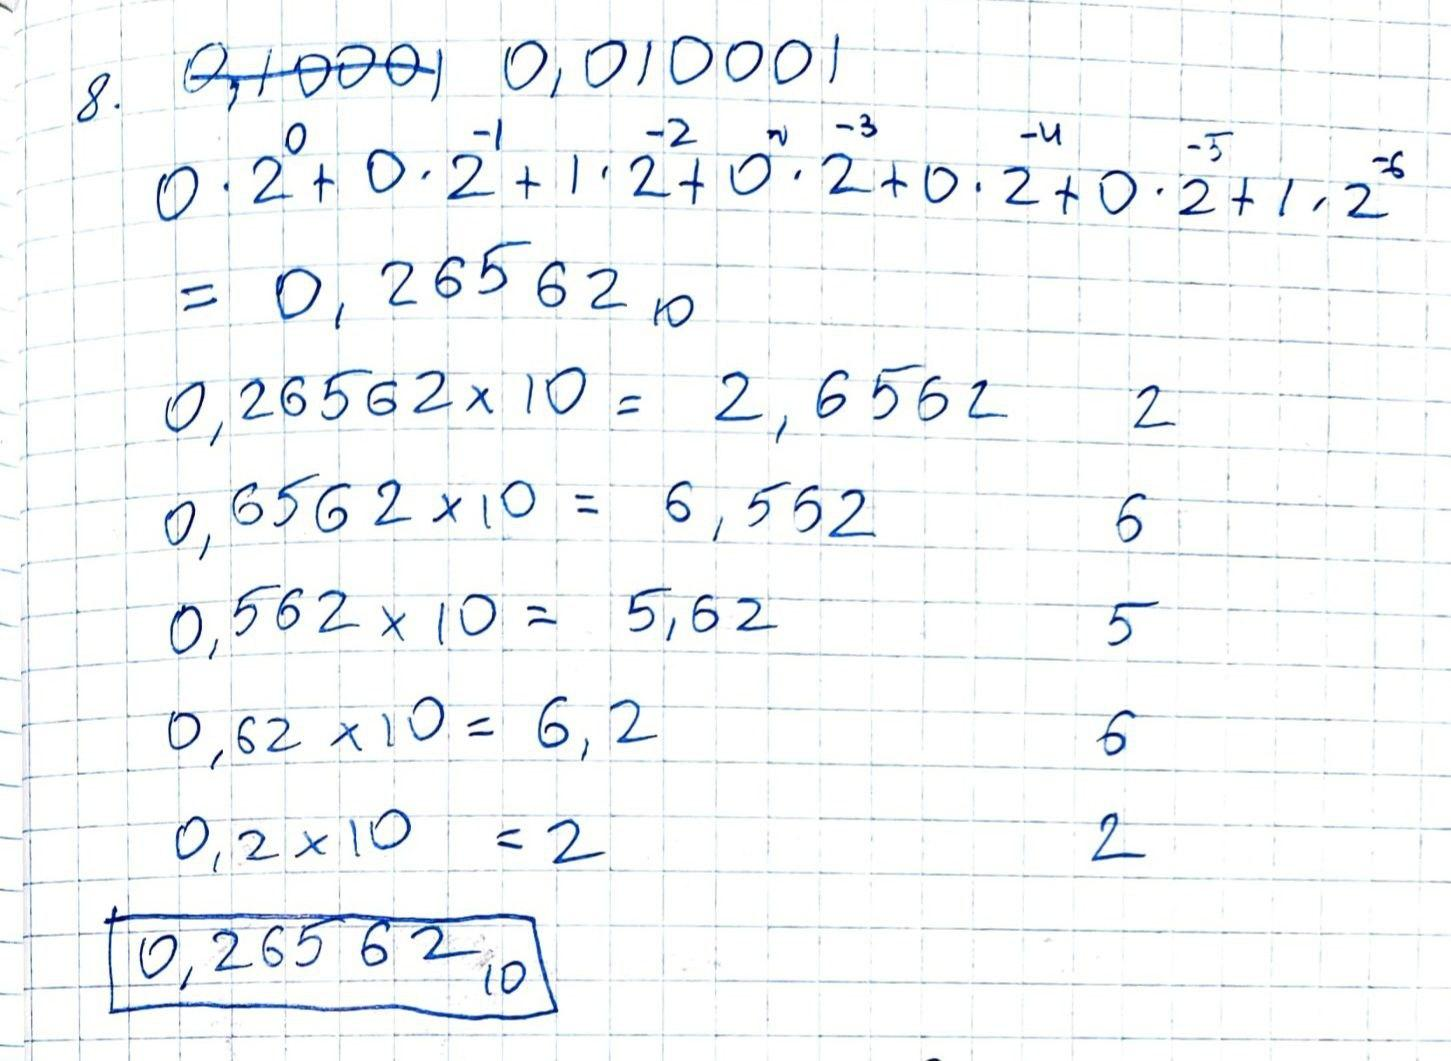 8. 0,10001 0,010001
0·2⁰+0·2⁻¹+1·2⁻²+0·2⁻³+0·2⁻⁴+0·2⁻⁵+1·2⁻⁶
= 0,26562₁₀
0,26562×10 = 2,6562 2
0,6562×10 = 6,562 6
0,562×10 = 5,62 5
0,62×10 = 6,2 6
0,2×10 = 2 2
0,26562₁₀